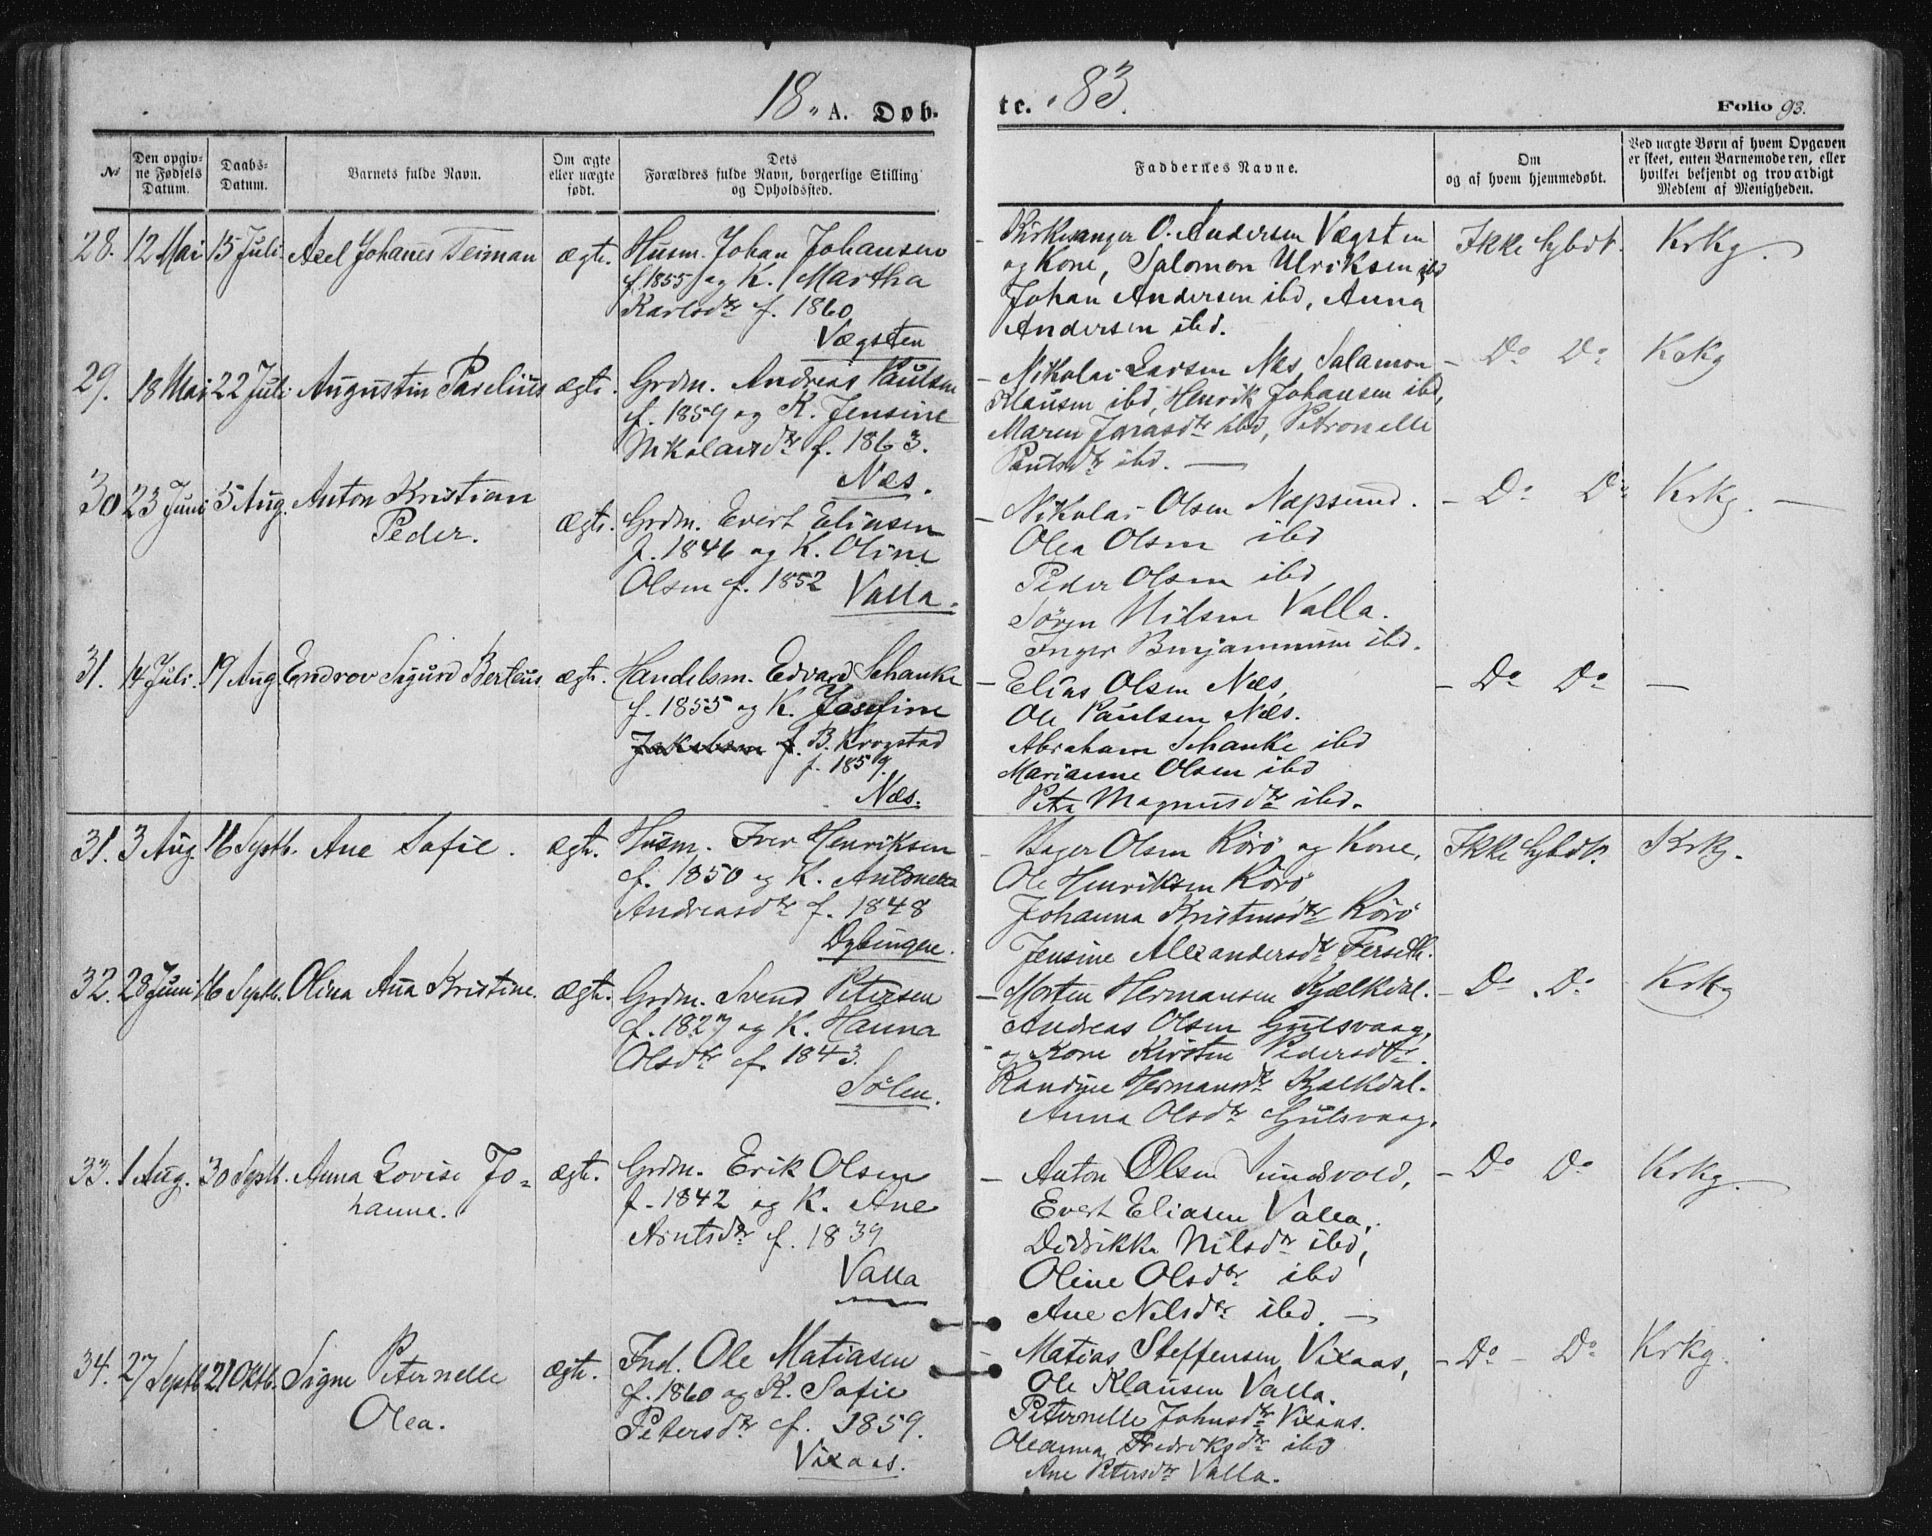 18 A. Døb-
te. 83.
Folio 93.
No
Den opgiv-
ne Fødsels
Datum.
Daabs-
Datum.
Barnets fulde Navn.
Om ægte
eller uægte
født.
Dets
Forældres fulde Navn, borgerlige Stilling
og Opholdssted.
Faddernes Navne.
Om
og af hvem hjemmedøbt.
Ved uægte Børn af hvem Opgaven
er skeet, enten Barnemoderen, eller
hvilket bekjendt og troværdigt
Medlem af Menigheden.
28. 12 Mai 15 Juli Axel Johanes Teiman ægte.
Husm. Johan Johansen
f. 1855 og K. Martha
Karlsdtr f. 1860
Vægsten
Kirkesanger O. Andersen Vægsten
og Kone, Salomon Ulriksen ibd
Johan Andersen ibd, Anna
Andersen ibd.
Ikke hjbdt. Krkg.
29. 18 Mai 22 Juli Augustin Parelius ægte.
Grdm. Andreas Paulsen
f. 1859 og K. Jensine
Nikolaisdtr f. 1863.
Næs.
Nikolai Larsen Næs, Salamon
Klausen ibd, Henrik Johansen ibd,
Maren Jonasdtr ibd, Petronelle
Paulsdtr ibd. —
— Do Do Krkg
30 23 Juni 5 Aug. Anton Kristian
Peder.
ægte.
Grdm. Evert Eliasen
f. 1846 og K. Oline
Olsen f. 1852 Valla.
— Nikolai Olsen Napsund.
Olea Olsen ibd
Peder Olsen ibd
Sören Nilsen Valla.
Inger Benjaminsen ibd.
— Do Do Krkg. —
31. 14 Juli. 19 Aug. Endrov Sigurd Berteus ægte.
Handelsm. Edvard Schanke
f. 1855 og K. Josefine
Jakobsen f. B. Krogstad
f. 1859.
Næs.
— Elias Olsen Næs,
Ole Paulsen Næs.
Abraham Schanke ibd
Marianne Olsen ibd
Petra Magnusdtr ibd.
— Do Do —
31. 3 Aug. 16 Septb. Ane Sofie. ægte.
Husm. Iver Henriksen
f. 1850 og K. Antonetta
Andreasdtr f. 1848
Dybingen.
Olsen Rörö og Kone,
Ole Henriksen Rörö
Johanna Rörö
Jensine Alexandersdtr Ferseth.
Ikke hjbdt. Krkg.
32. 28 Juni 16 Septb. Olina Ana Kristine. ægte.
Grdm. Svend Petersen
f. 1827 og K. Hanna
Olsdtr f. 1843.
Sölen.
— Morten Hermansen Kjælkdal.
Andreas Olsen Gulsvaag,
og Kone Kirsten Pedersdtr.
Randine Hermansdtr Kjælkdal.
Anna Olsdtr Gulsvaag.
— Do Do Krkg
33. 1 Aug. 30 Septb. Anna Lovise Jo-
hanna.
ægte.
Grdm. Erik Olsen
f. 1842 og K. Ane
Arntsdtr f. 1839
Valla
— Anton Olsen Sundsvold,
Evert Eliasen Valla,
Didrikke Nilsdtr ibd,
Oline Olsdtr ibd
Ane Nilsdtr ibd. —
— Do Do Krkg.
34. 27 Septb 21 Oktb. Signe Peternelle
Olea.
ægte.
Ind. Ole Matiasen
f. 1860 og K. Sofie
Petersdtr f. 1859.
Vixaas.
— Matias Steffensen Vixaas,
Ole Klausen Valla.
Peternelle Johnsdtr Vixaas.
Oleanna Fredriksdtr ibd
Ane Petersdtr Valla.
— Do — Do Krkg.